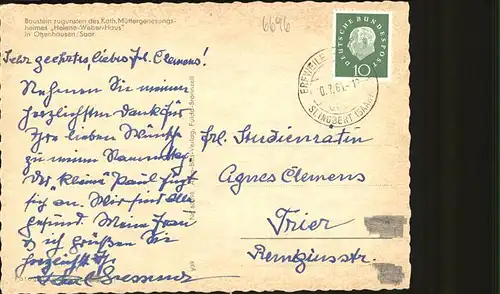 Baustein zugunsten des Kath. Müttergenesungs-
heimes „Helene-Weber-Haus"
in Otzenhausen/Saar
6696
DEUTSCHE BUNDESPOST
10
ERFWEILE
ST. INGBERT (SAAR)
Sehr geehrtes, liebes Frl. Clemens!
Nehmen Sie meinen
herzlichsten Dank für
Ihre lieben Wünsche
zu meinem Namenstag
Der „kleine" Paul
sich an. Wir sind alle
gesund. Meine Frau
u. ich grüßen Sie
herzlichst Ihr
Frl. Studienrätin
Agnes Clemens
Trier
Remigiusstr.